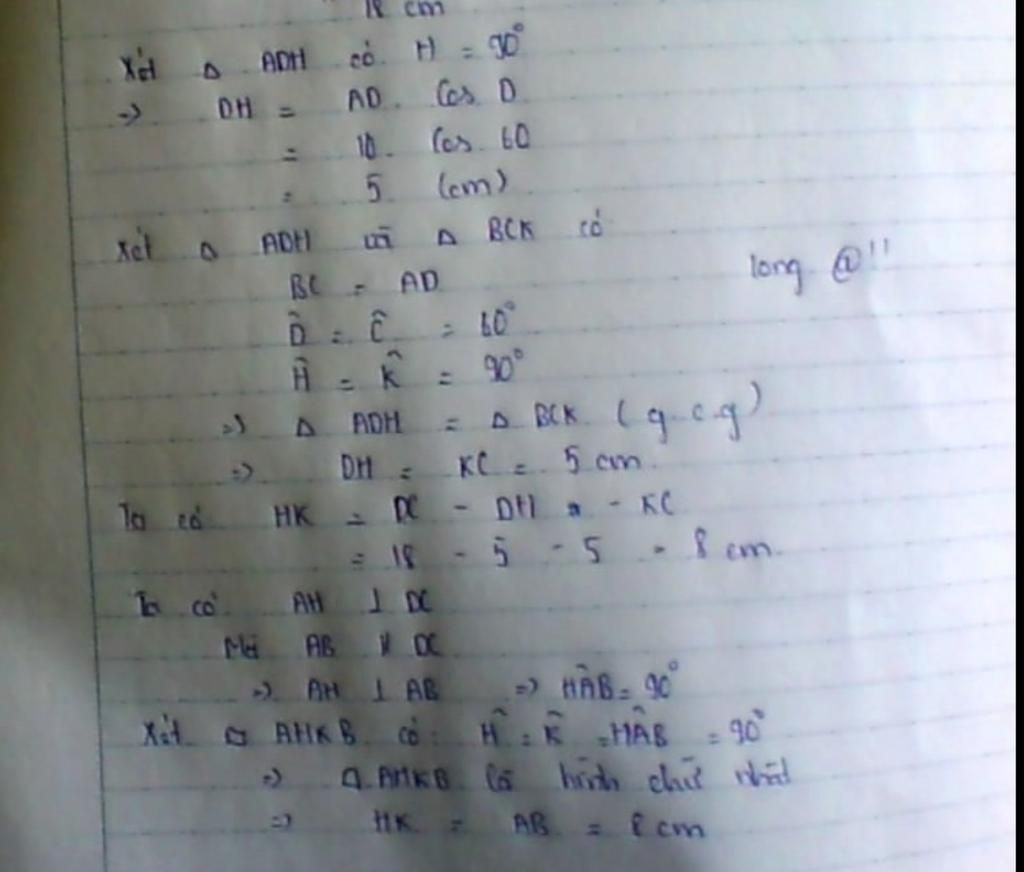 18 cm
Xét Δ ADH có H = 90°
=> DH = AD. Cos D
= 10. Cos 60
= 5 (cm)
Xét Δ ADH và Δ BCK có
BC = AD
long @!!
D̂ = Ĉ = 60°
Ĥ = K̂ = 90°
=> Δ ADH = Δ BCK (g.c.g)
=> DH = KC = 5 cm.
Ta có HK = DC - DH - KC
= 18 - 5 - 5 = 8 cm.
Ta có AH ⊥ DC
Mà AB // DC
=> AH ⊥ AB => HÂB = 90°
Xét □ AHKB có: Ĥ = K̂ = HÂB = 90°
=> □ AHKB là hình chữ nhật
=> HK = AB = 8 cm